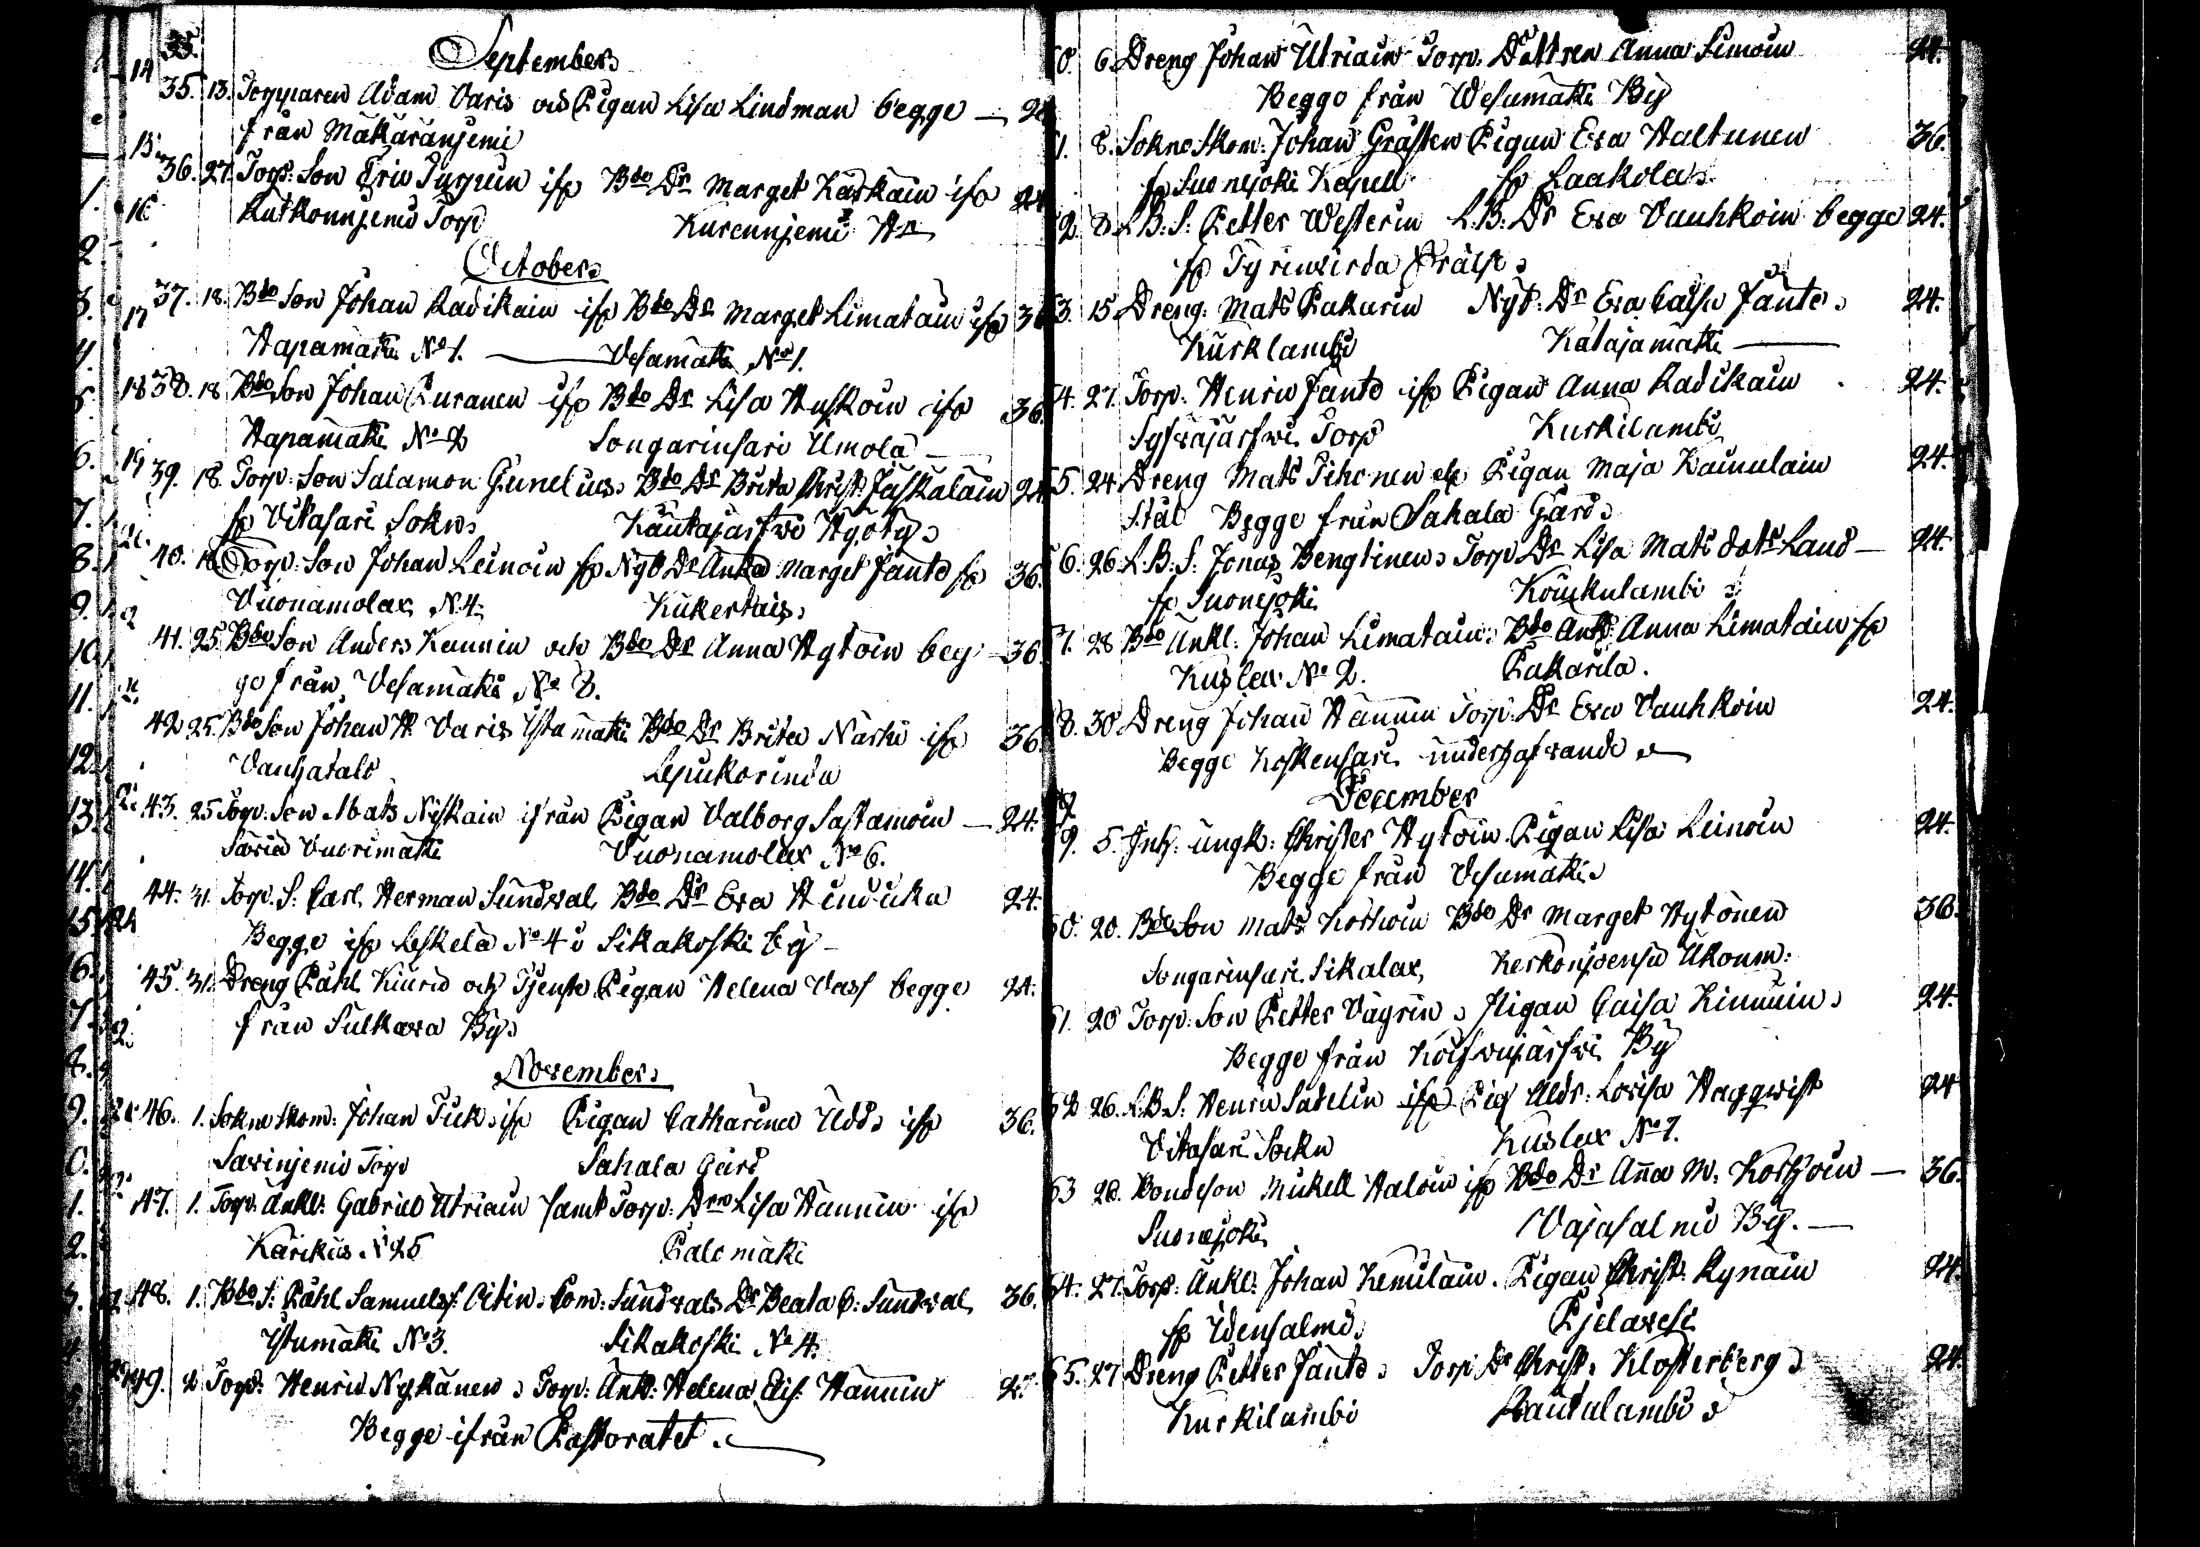 September
35. 13. Torpparen Adam Varis och Pigan Lisa Lindman begge — 24
från Makaranjemi
36. 27. Torp: Son Eric Typpuin ifr Bde Dr Marget Karkain ifr 24
Kutkonnjemi Torp Kurennjemi
October
37. 18. Bde Son Johan Radikain ifr Bde Dr Marget Limatain ifr 36
Hapamäki No 1. — Vesamäki No 1.
38. 18 Bde Son Johan Puranen ifr Bde Dr Lisa Huskoin ifr 36.
Hapamäki No 2 Songarinsari Umola —
39. 18. Torp: Son Salamon Gunelius Bde Dr Brita Christ: Jäskäläin 24
fr Vitasari Sokn Kautajärfwi Hgötg
40. 18 Torp: Son Johan Leinoin fr Nyb Dr Anna Marget Jänte fr 36.
Vuonamolax N. 4. Kukertais
41. 25 Bde Son Anders Kaunin och Bde Dr Anna Hytöin beg 36.
ge från Vesamäki No 8.
42 25. Bde Son Johan H. Varis Istamäki Bde Dr Brita Närhi ifr 36.
Vanhatalo Lepukorinda
43. 25 Torp: Son Mats Niskain ifrån Pigan Valborg Sastamoin — 24.
Vuorimäki Vuonamolax No 6.
44. 31. Torp. S. Carl Herman Sundval Bde Dr Eva Hinduka 24.
Begge ifr Leskelä No 4 i Sikakoski by —
45. 31. Dreng Påhl Kiuru och Tjenste Pigan Helena Vass begge 24.
från Sulkava By
November
46. 1. Sokneskom: Johan Tick ifr Pigan Catharina Udd ifr 36.
Savinjemi Torp Sahala Gård
47. 1. Torp: Ankl: Gabriel Utriain samt Torp: Dren Lisa Hännin ifr
Karikus N 25 Palomäki
48. 1. Bde S: Påhl Samuelss: Com: Sundvals Dr Beata C: Sundval 36.
Istumäki No 3. Sikakoski No 4.
49. 2 Torp: Henric Nykänen Torp: Ank: Helena Elis: Hännin 24.
Begge ifrån Pastoratet.
0. 6. Dreng Johan Utriain Torp: Dottren Anna Simoin 24.
Begge från Wesamäki By
1. 8. Sokneskom: Johan Gråsten Pigan Eva Haltunen 36.
fr Suonejoki Kapell fr Laakola
2. 8. L.B.S. Petter Westerin L.B. Dr Eva Vauhkoin begge 24.
fr Tyriwirda Frälse
3. 15. Dreng Mats Pakarin Nyb: Dr Eva Caisa Jänte 24.
Kursklambi Katajamäki —
4. 27. Torp: Henric Jänte ifr Pigan Anna Radikain 24.
Syfväjärfwi Torp Kurkilambi
5. 24. Dreng Mats Tihonen Pigan Maja Kainulain 24.
Begge från Sahala Gård
6. 26. L.B.S. Jonas Bengtinen Torp Dr Lisa Matsdotr Laud — 24.
fr Suonejoki Koukulambi
7. 28 Bde Ankl: Johan Limatain Bde Ank: Anna Limatain fr
Kuslax No 2. Pakarila.
8. 30 Dreng Johan Hännin Torp: Dr Eva Vauhkoin 24.
Begge Koskensari underhafvande
December
9. 5. Inh: ungk: Christer Hytöin Pigan Lisa Leinoin 24.
Begge från Vesamäki
60. 20. Bde Son Mats Korhoin Bde Dr Marget Hytönen 36.
Songarinsari Sikalax Kerkonjoensu Ukonm:
61. 20 Torp: Son Petter Vägrin Pigan Caisa Kinnuin 24.
Begge från Kolfwijärfwi By
62 26. L.B.S. Henric Sadelin ifr Pig Aldr: Lovisa Haggqvist 24
Vitasari Sockn Kuslax No 7.
63 28. Bondeson Mickell Haloin ifr Bde Dr Anna M: Korhoin — 36.
Suonejoki Vajasalmi By. —
64. 27. Torp: Ankl: Johan Kemiläin. Pigan Christ: Rynäin 24
fr Idensalmi Pjelavesi
65. 27 Dreng Petter Jänte Torp: Dr Christ: Klosterberg 24.
Kurkilambi Rautalambi